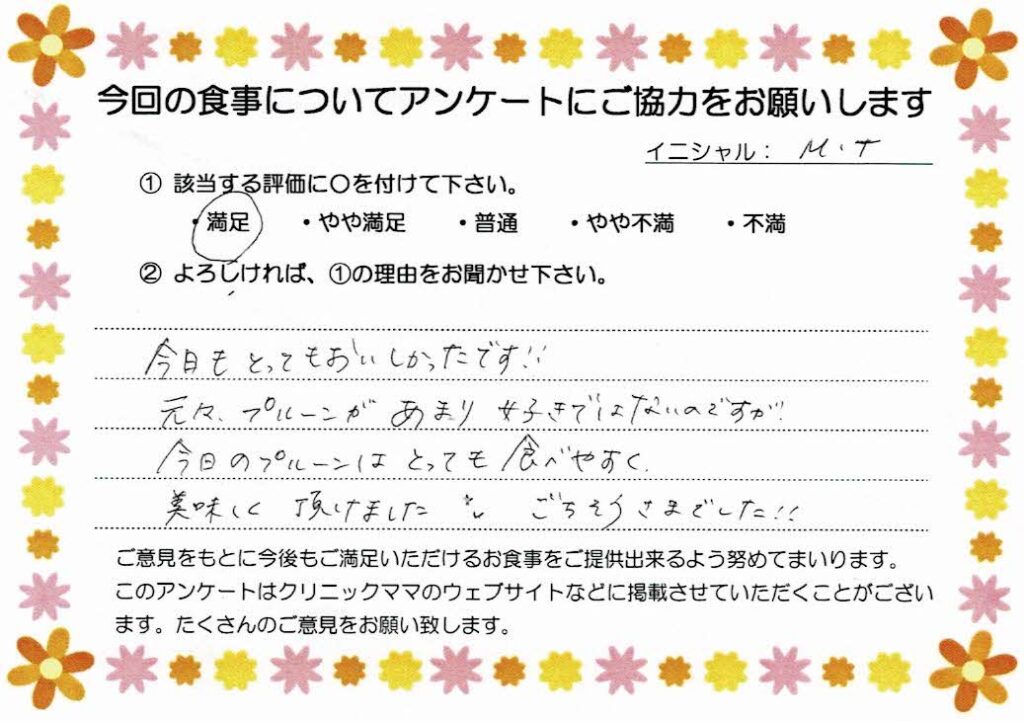 今回の食事についてアンケートにご協力をお願いします
イニシャル： M.T
① 該当する評価に〇を付けて下さい。
・満足 ・やや満足 ・普通 ・やや不満 ・不満
② よろしければ、①の理由をお聞かせ下さい。
今日もとってもおいしかったです!!
元々、プルーンがあまり好きではないのですが!
今日のプルーンはとっても食べやすく、
美味しく頂けました ごちそうさまでした!!
ご意見をもとに今後もご満足いただけるお食事をご提供出来るよう努めてまいります。
このアンケートはクリニックママのウェブサイトなどに掲載させていただくことがござい
ます。たくさんのご意見をお願い致します。